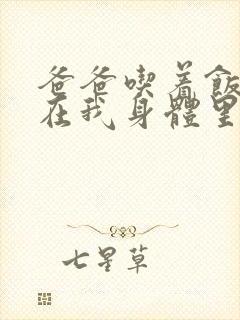 爸爸喫着飯
在我身體里
七星草